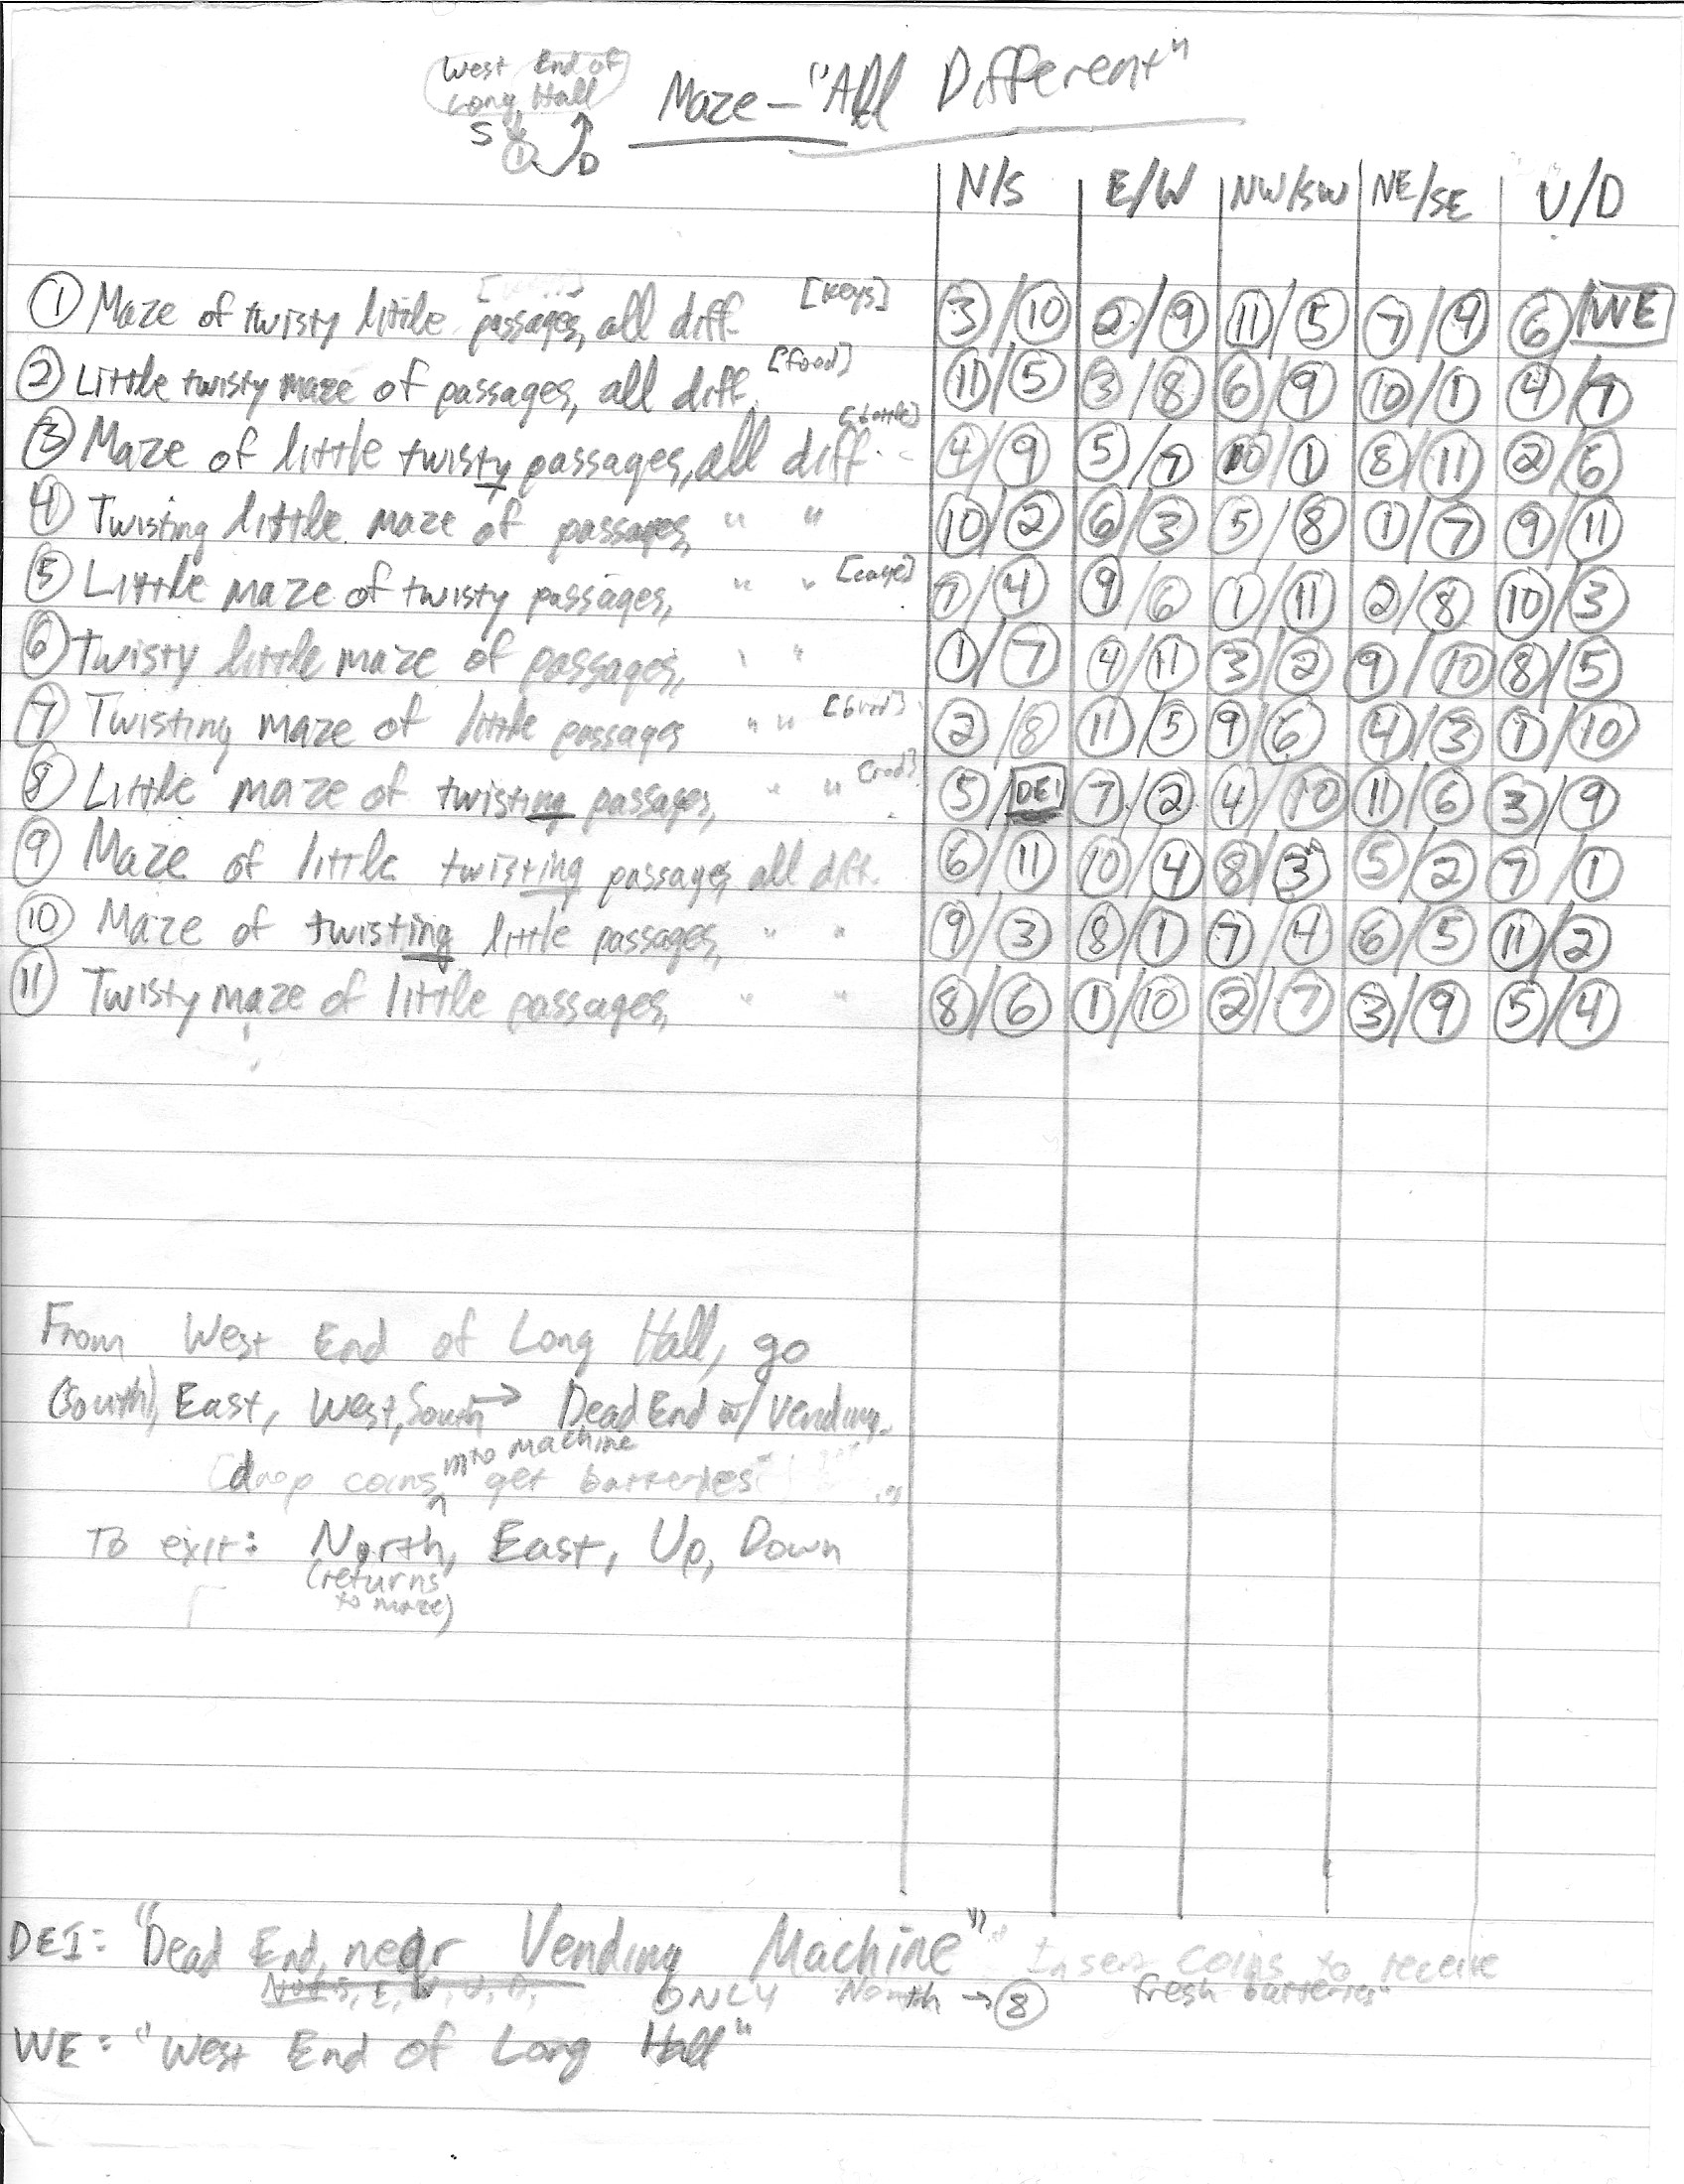 West End of
Long Hall
Maze - "All Different"
S ① D
N/S E/W NW/SW NE/SE U/D
① Maze of twisty little passages, all diff [keys] ③/⑩ ②/⑨ ⑪/⑤ ⑦/④ ⑥/WE
② Little twisty maze of passages, all diff. [food] ⑪/⑤ ③/⑧ ⑥/⑨ ⑩/① ④/⑦
③ Maze of little twisty passages, all diff. [bottle] ④/⑨ ⑤/⑦ ⑩/① ⑧/⑪ ②/⑥
④ Twisting little maze of passages, " " ⑩/② ⑥/③ ⑤/⑧ ①/⑦ ⑨/⑪
⑤ Little maze of twisty passages, " " [cage] ⑦/④ ⑨/⑥ ①/⑪ ②/⑧ ⑩/③
⑥ Twisty little maze of passages, " " ①/⑦ ④/⑪ ③/② ⑨/⑩ ⑧/⑤
⑦ Twisting maze of little passages " " [bird] ②/⑧ ⑪/⑤ ⑨/⑥ ④/③ ①/⑩
⑧ Little maze of twisting passages, " " [rod] ⑤/DE1 ⑦/② ④/⑩ ⑪/⑥ ③/⑨
⑨ Maze of little twisting passages, all diff. ⑥/⑪ ⑩/④ ⑧/③ ⑤/② ⑦/①
⑩ Maze of twisting little passages, " " ⑨/③ ⑧/① ⑦/④ ⑥/⑤ ⑪/②
⑪ Twisty maze of little passages, " " ⑧/⑥ ①/⑩ ②/⑦ ③/⑨ ⑤/④
From West End of Long Hall, go
(South), East, West, South → Dead End w/ Vending.
[drop coins into machine get batteries
To exit: North, East, Up, Down
(returns
to maze)
DE1: "Dead End, near Vending Machine" Insert coins to receive
ONLY North → ⑧ fresh batteries"
WE: "West End of Long Hall"